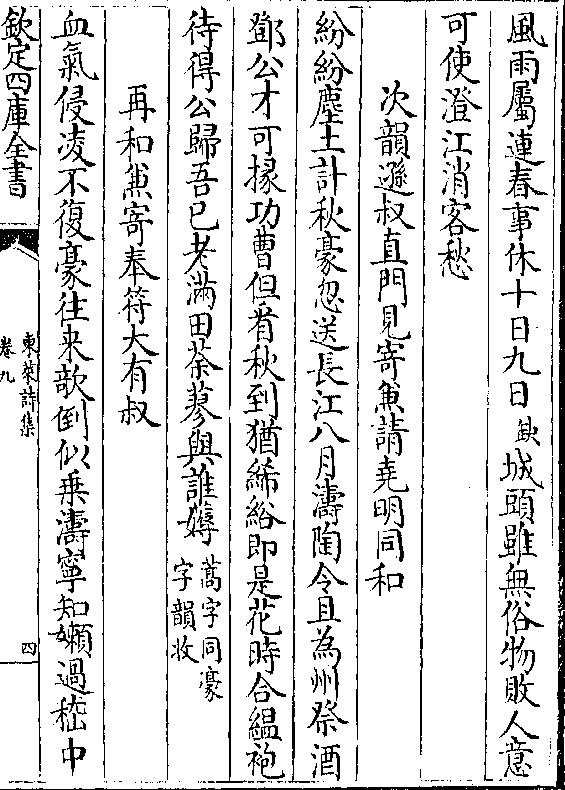 風雨屬連春事休十日九日缺城頭雖無俗物敗人意
可使澄江消客愁
次韻遜叔直門見寄兼請堯明同和
紛紛塵土計秋豪忽送長江八月濤陶令且為州祭酒
鄧公才可掾功曹但看秋到猶絺綌即是花時合緼袍
待得公歸吾已老滿田荼蓼與誰媷
蒿字同豪
字韻收
再和兼寄奉符大有叔
血氣侵凌不復豪往来歌倒似乗濤寧知嬾過嵇中
欽定四庫全書
東萊詩集
卷九
四